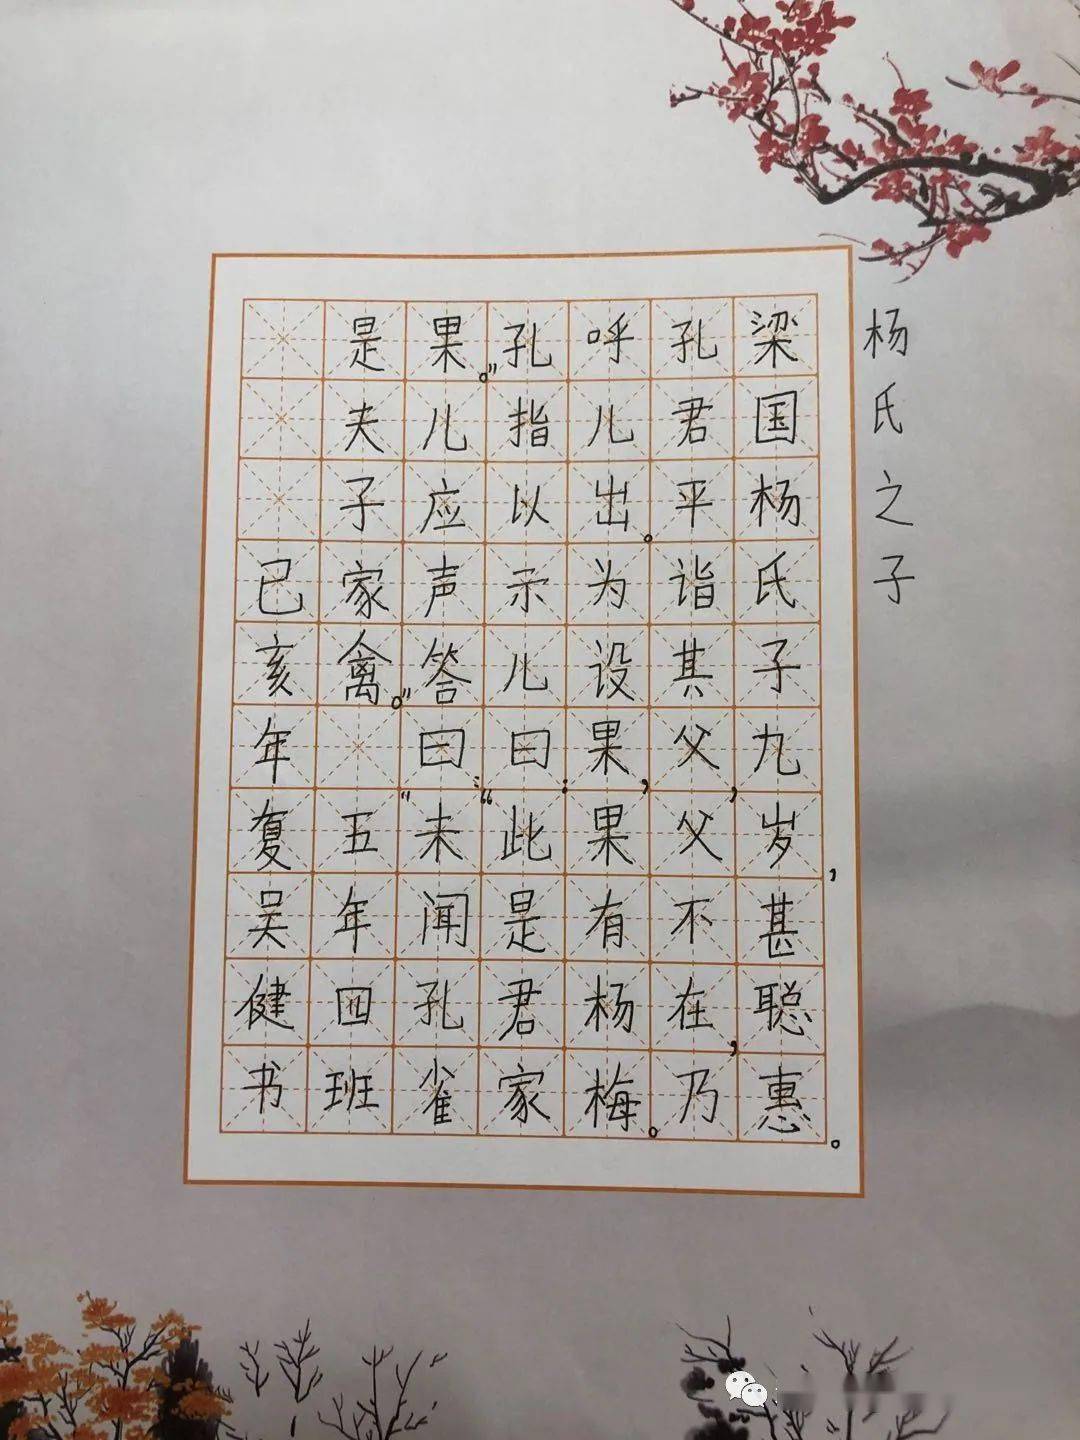 杨氏之子
梁国杨氏子九岁，甚聪惠。
孔君平诣其父，父不在，乃
呼儿出。为设果，果有杨梅。
孔指以示儿曰：“此是君家
果。”儿应声答曰：“未闻孔雀
是夫子家禽。” 五年四班
已亥年复吴健书